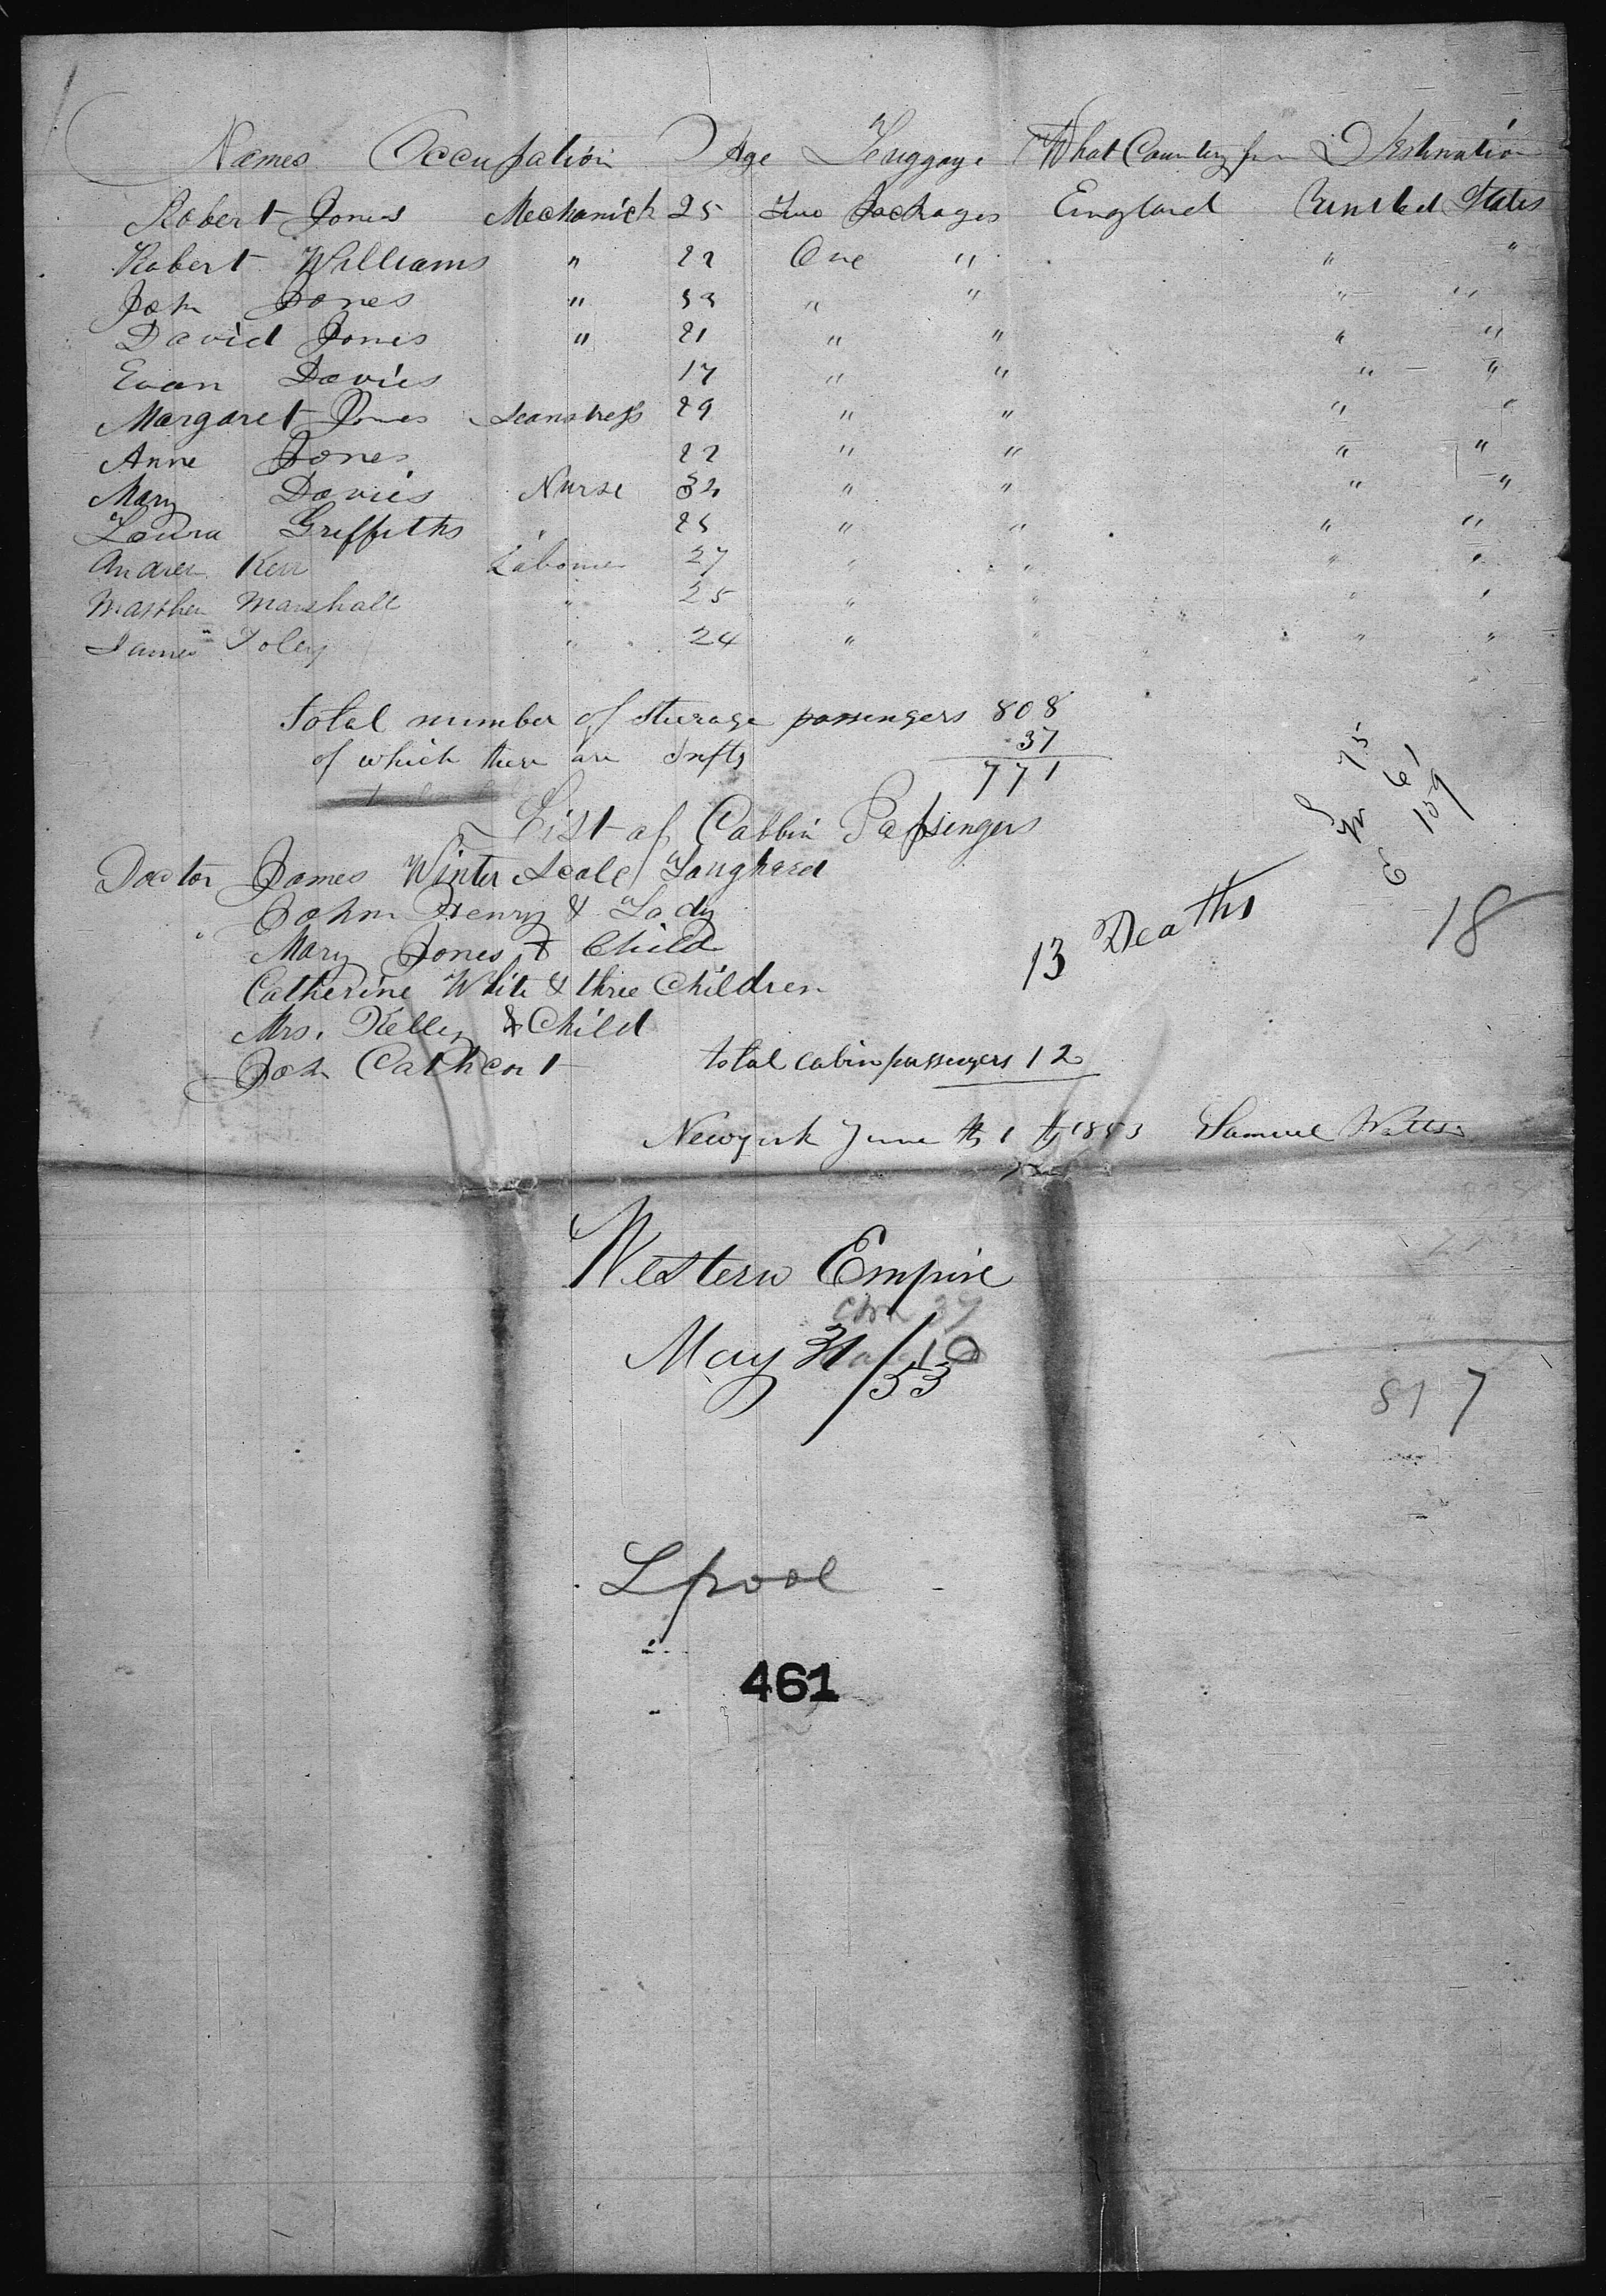 Names Occupation Age Luggage What Country from Destination
Robert Jones Mechanick 25 Two Packages England United States
Robert Williams " 22 One " " "
Joh Jones " 33 " " " "
David Jones " 21 " " " "
Evan Davies 17 " " " "
Margaret Jones Seamstress 29 " " " "
Anne Jones 22 " " " "
Mary Davies Nurse 32 " " " "
Laura Griffiths " 25 " " " "
Andrew Kerr Labourer 27 " " " "
Matthew Marshall " 25 " " " "
James Foley " 24 " " " "
Total number of sturage passengers 808
of which there are Infts 37
771
List of Cabbin Passengers
Doctor James Winter Scale
John Henry & Lady
Mary Jones & Child
Catherine White & three Children
Mrs. Kelly & Child
Joh Cathcart
total cabin passengers 12
13 Deaths
18
75
61
159
Newyork June 1 1853 Samuel Watts
Western Empire
May 31/53
10
817
Lpool
461